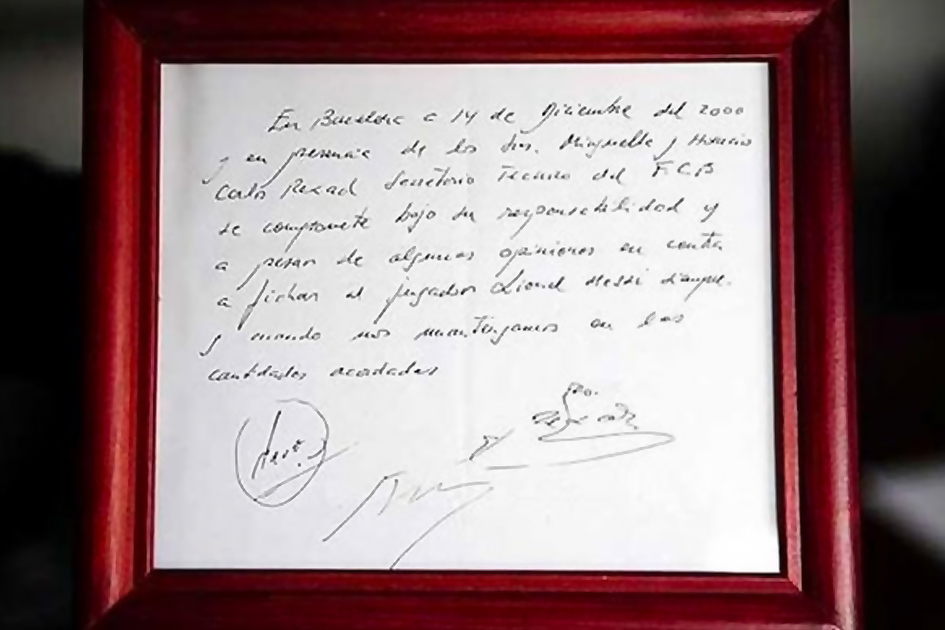 En Barcelona a 14 de Diciembre del 2000
y en presencia de los Srs. Minguella y Horacio
Carlos Rexach Secretario Técnico del F.C.B
se compromete bajo su responsabilidad y
a pesar de algunas opiniones en contra
a fichar al jugador Lionel Messi siempre
y cuando nos mantengamos en las
cantidades acordadas